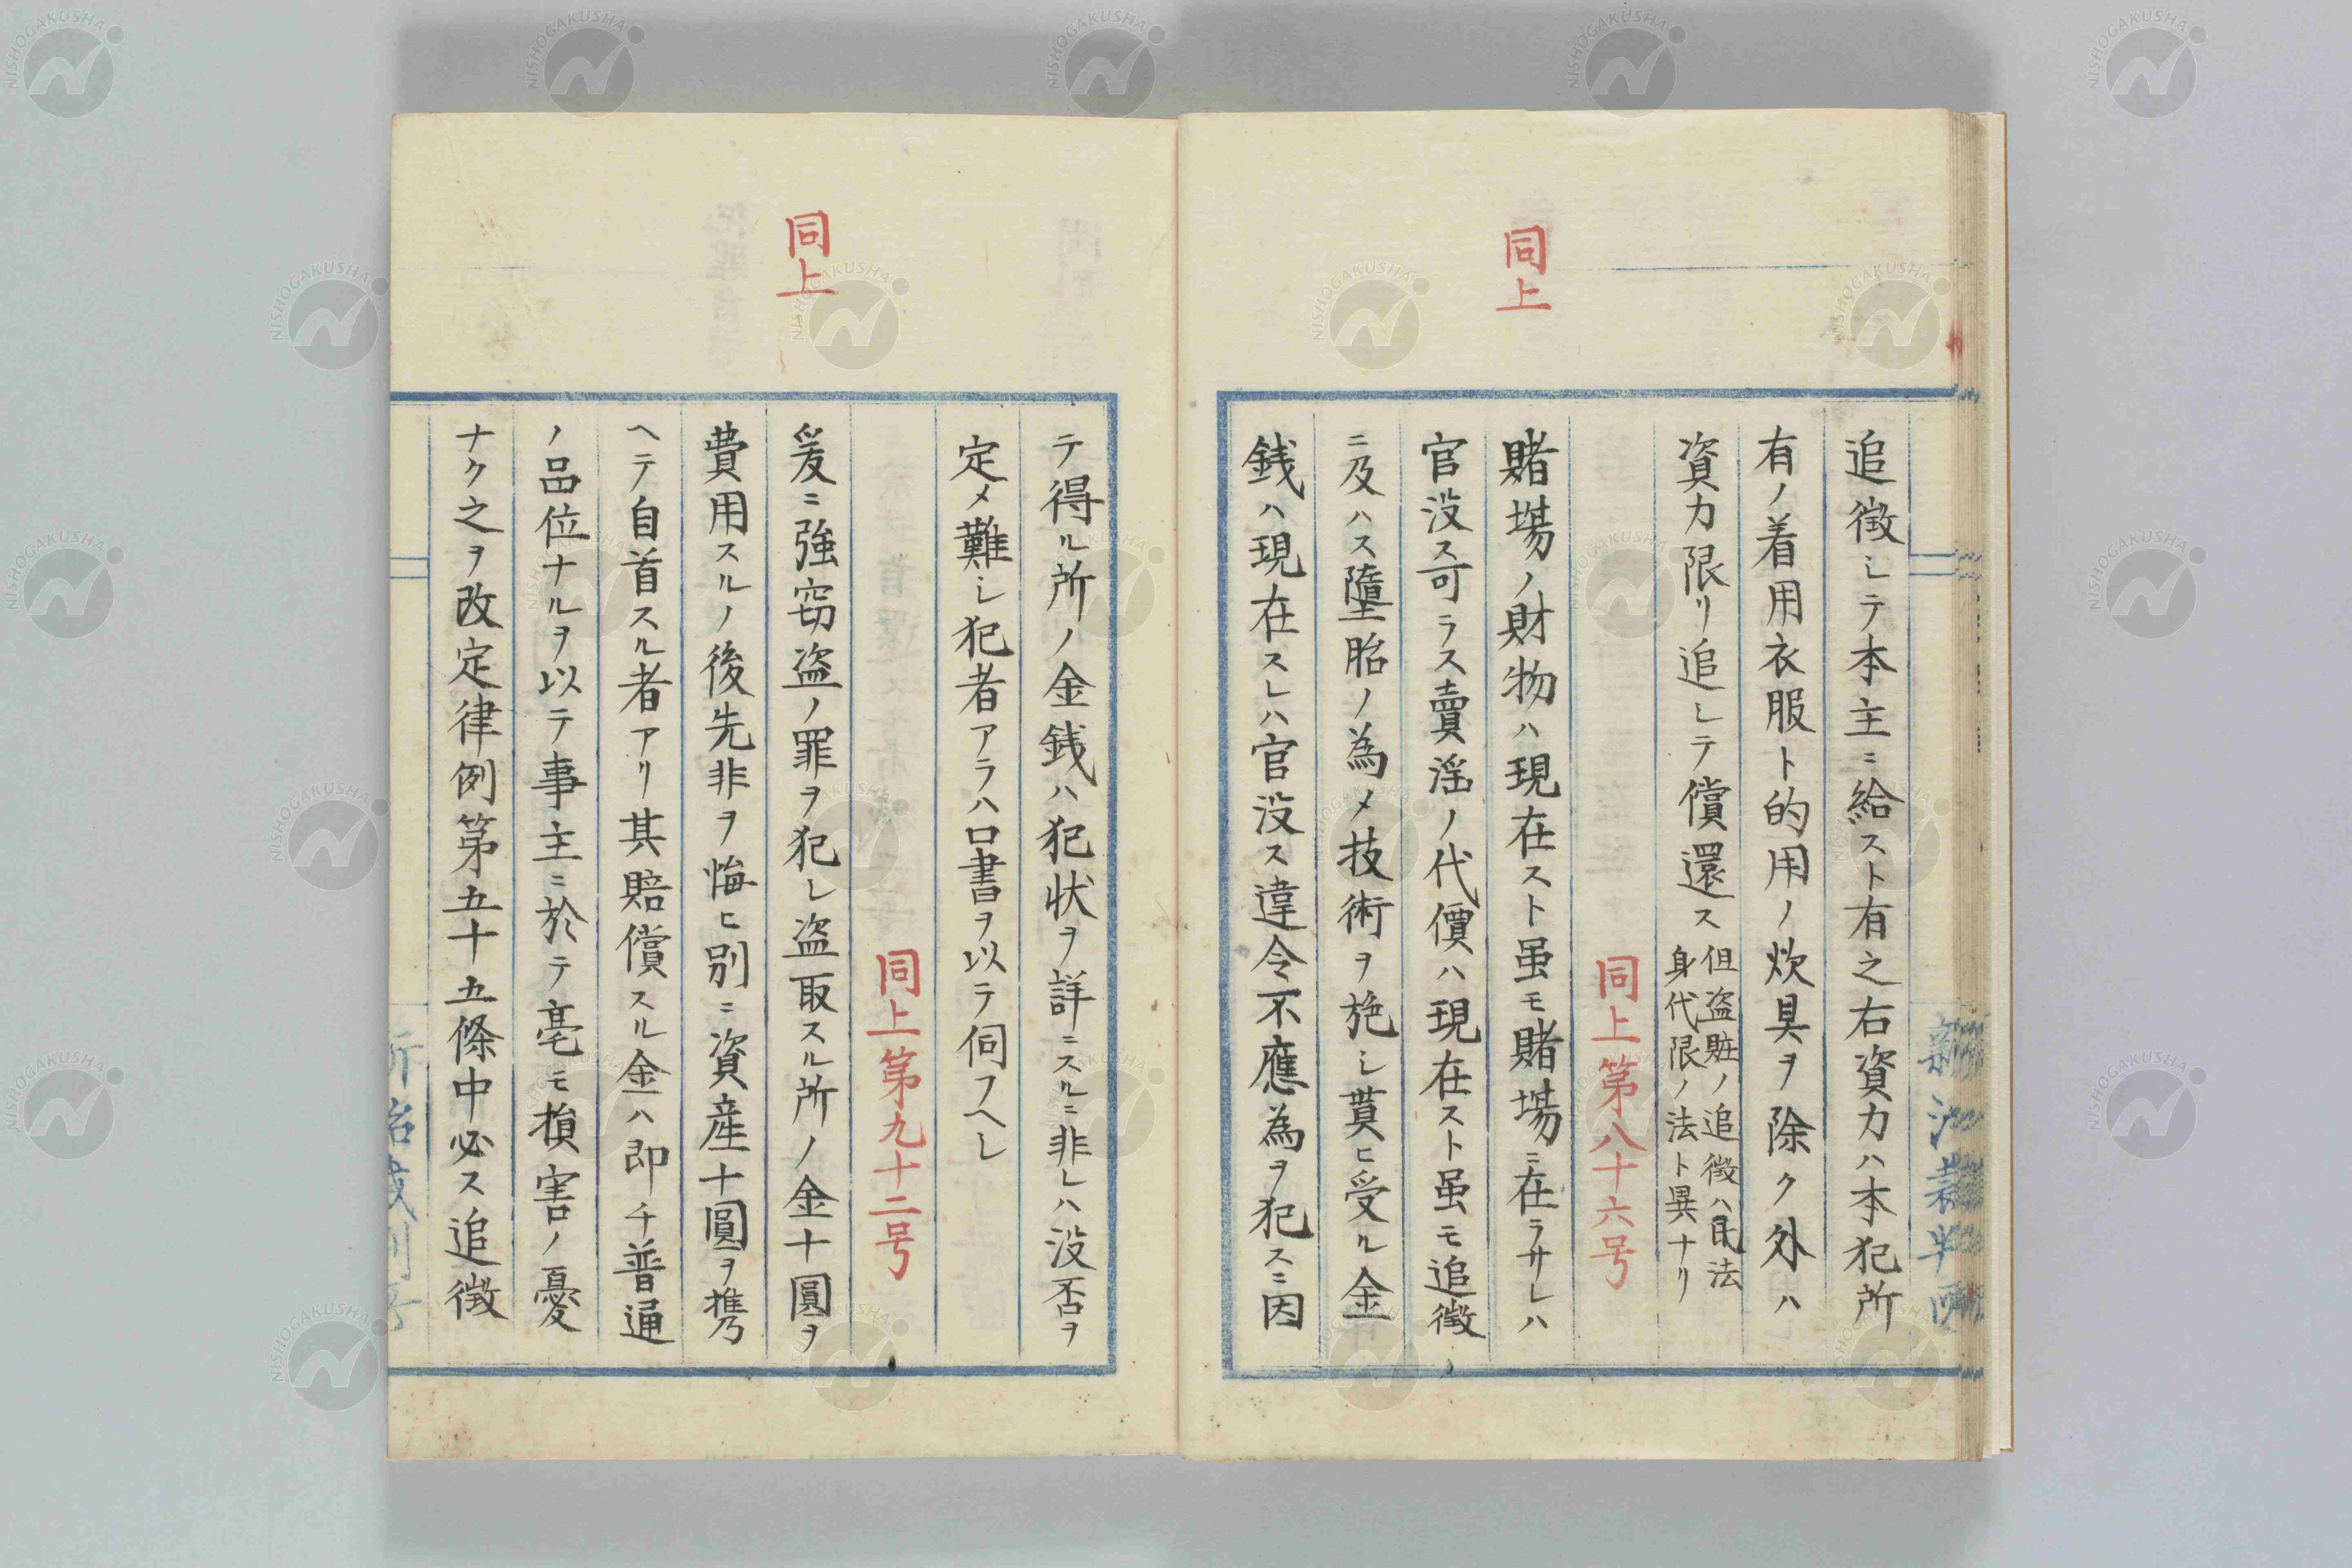 追徴シテ本主ニ給スト有之右資力ハ本犯所
有ノ着用衣服ト的用ノ炊具ヲ除ク外ハ
資力限リ追シテ償還ス
但盗賍ノ追徴ハ民法
身代限ノ法ト異ナリ
同上第八十六号
同上
賭場ノ財物ハ現在スト虽モ賭場ニ在ラサレハ
官没ス可ラス賣淫ノ代價ハ現在スト虽モ追徴
ニ及ハス墮胎ノ為メ技術ヲ施シ貰ヒ受ル金
銭ハ現在スレハ官没ス違令不應為ヲ犯スニ因
テ得ル所ノ金銭ハ犯状ヲ詳ニスルニ非レハ没否ヲ
定メ難シ犯者アラハ口書ヲ以テ伺フヘシ
同上第九十二号
同上
爰ニ強窃盗ノ罪ヲ犯シ盗取スル所ノ金十圓ヲ
費用スルノ後先非ヲ悔ヒ別ニ資産十圓ヲ携
ヘテ自首スル者アリ其賠償スル金ハ即チ普通
ノ品位ナルヲ以テ事主ニ於テ毫モ損害ノ憂
ナク之ヲ改定律例第五十五條中必ス追徴
NISHOGAKUSHA